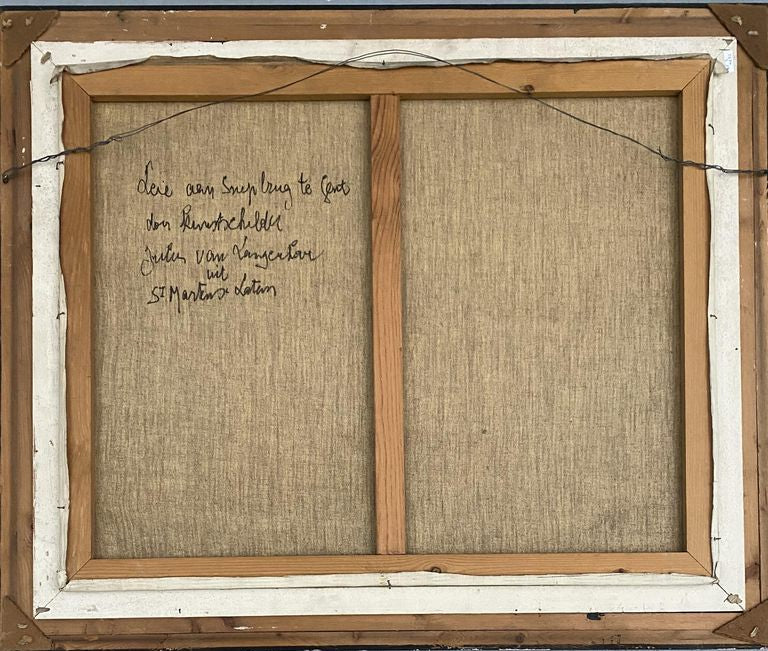 Leie aan Snepbrug te Gent
door Kunstschilder
Julien van Langenhove
uit
St Martens Latem